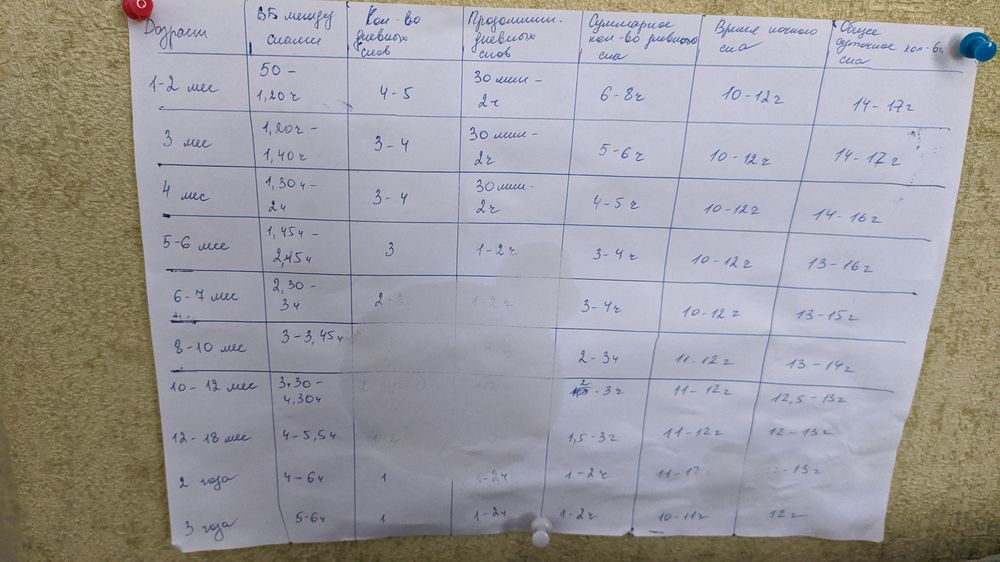 Возраст
ВБ между
снами
Кол-во
дневных
снов
Продолжит.
дневных
снов
Суммарное
кол-во дневного
сна
Время ночного
сна
Общее
суточное кол-во
сна
1-2 мес
50 -
1,20ч
4-5
30 мин -
2ч
6-8ч
10-12ч
14-17ч
3 мес
1,20ч -
1,40ч
3-4
30 мин -
2ч
5-6ч
10-12ч
14-17ч
4 мес
1,30ч -
2ч
3-4
30 мин -
2ч
4-5ч
10-12ч
14-16ч
5-6 мес
1,45ч -
2,45ч
3
1-2ч
3-4ч
10-12ч
13-16ч
6-7 мес
2,30 -
3ч
2-3
1-2ч
3-4ч
10-12ч
13-15ч
8-10 мес
3-3,45ч
2-3ч
11-12ч
13-14ч
10-12 мес
3,30 -
4,30ч
2
2-3ч
11-12ч
12,5-13ч
12-18 мес
4-5,5ч
1,5-3ч
11-12ч
12-13ч
2 года
4-6ч
1
1-2ч
1-2ч
11-12
-13ч
3 года
5-6ч
1
1-2ч
1-2ч
10-11ч
12ч